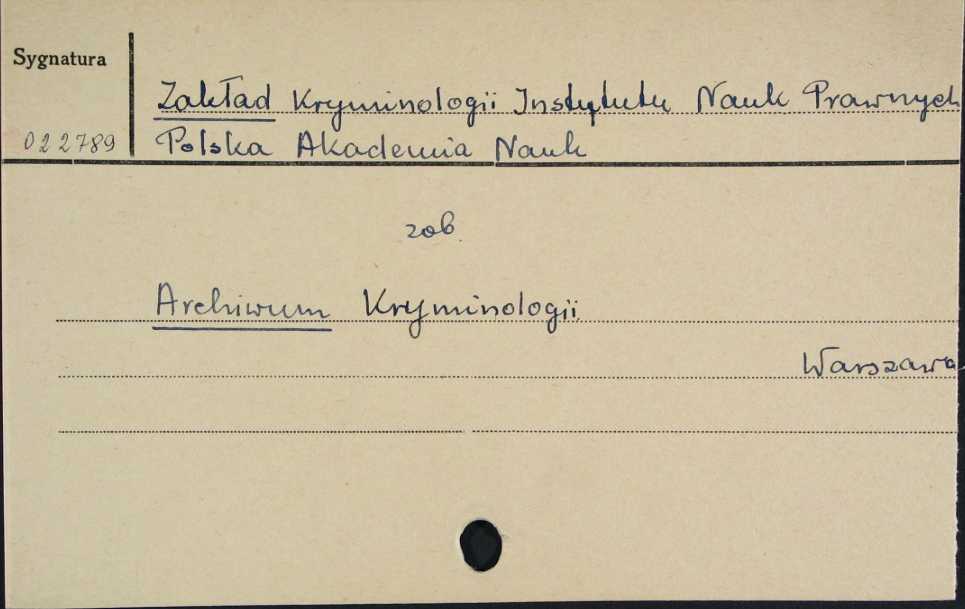 Sygnatura
Zakład Kryminologii Instytutu Nauk Prawnych
022789 Polska Akademia Nauk
zob.
Archiwum Kryminologii
Warszawa